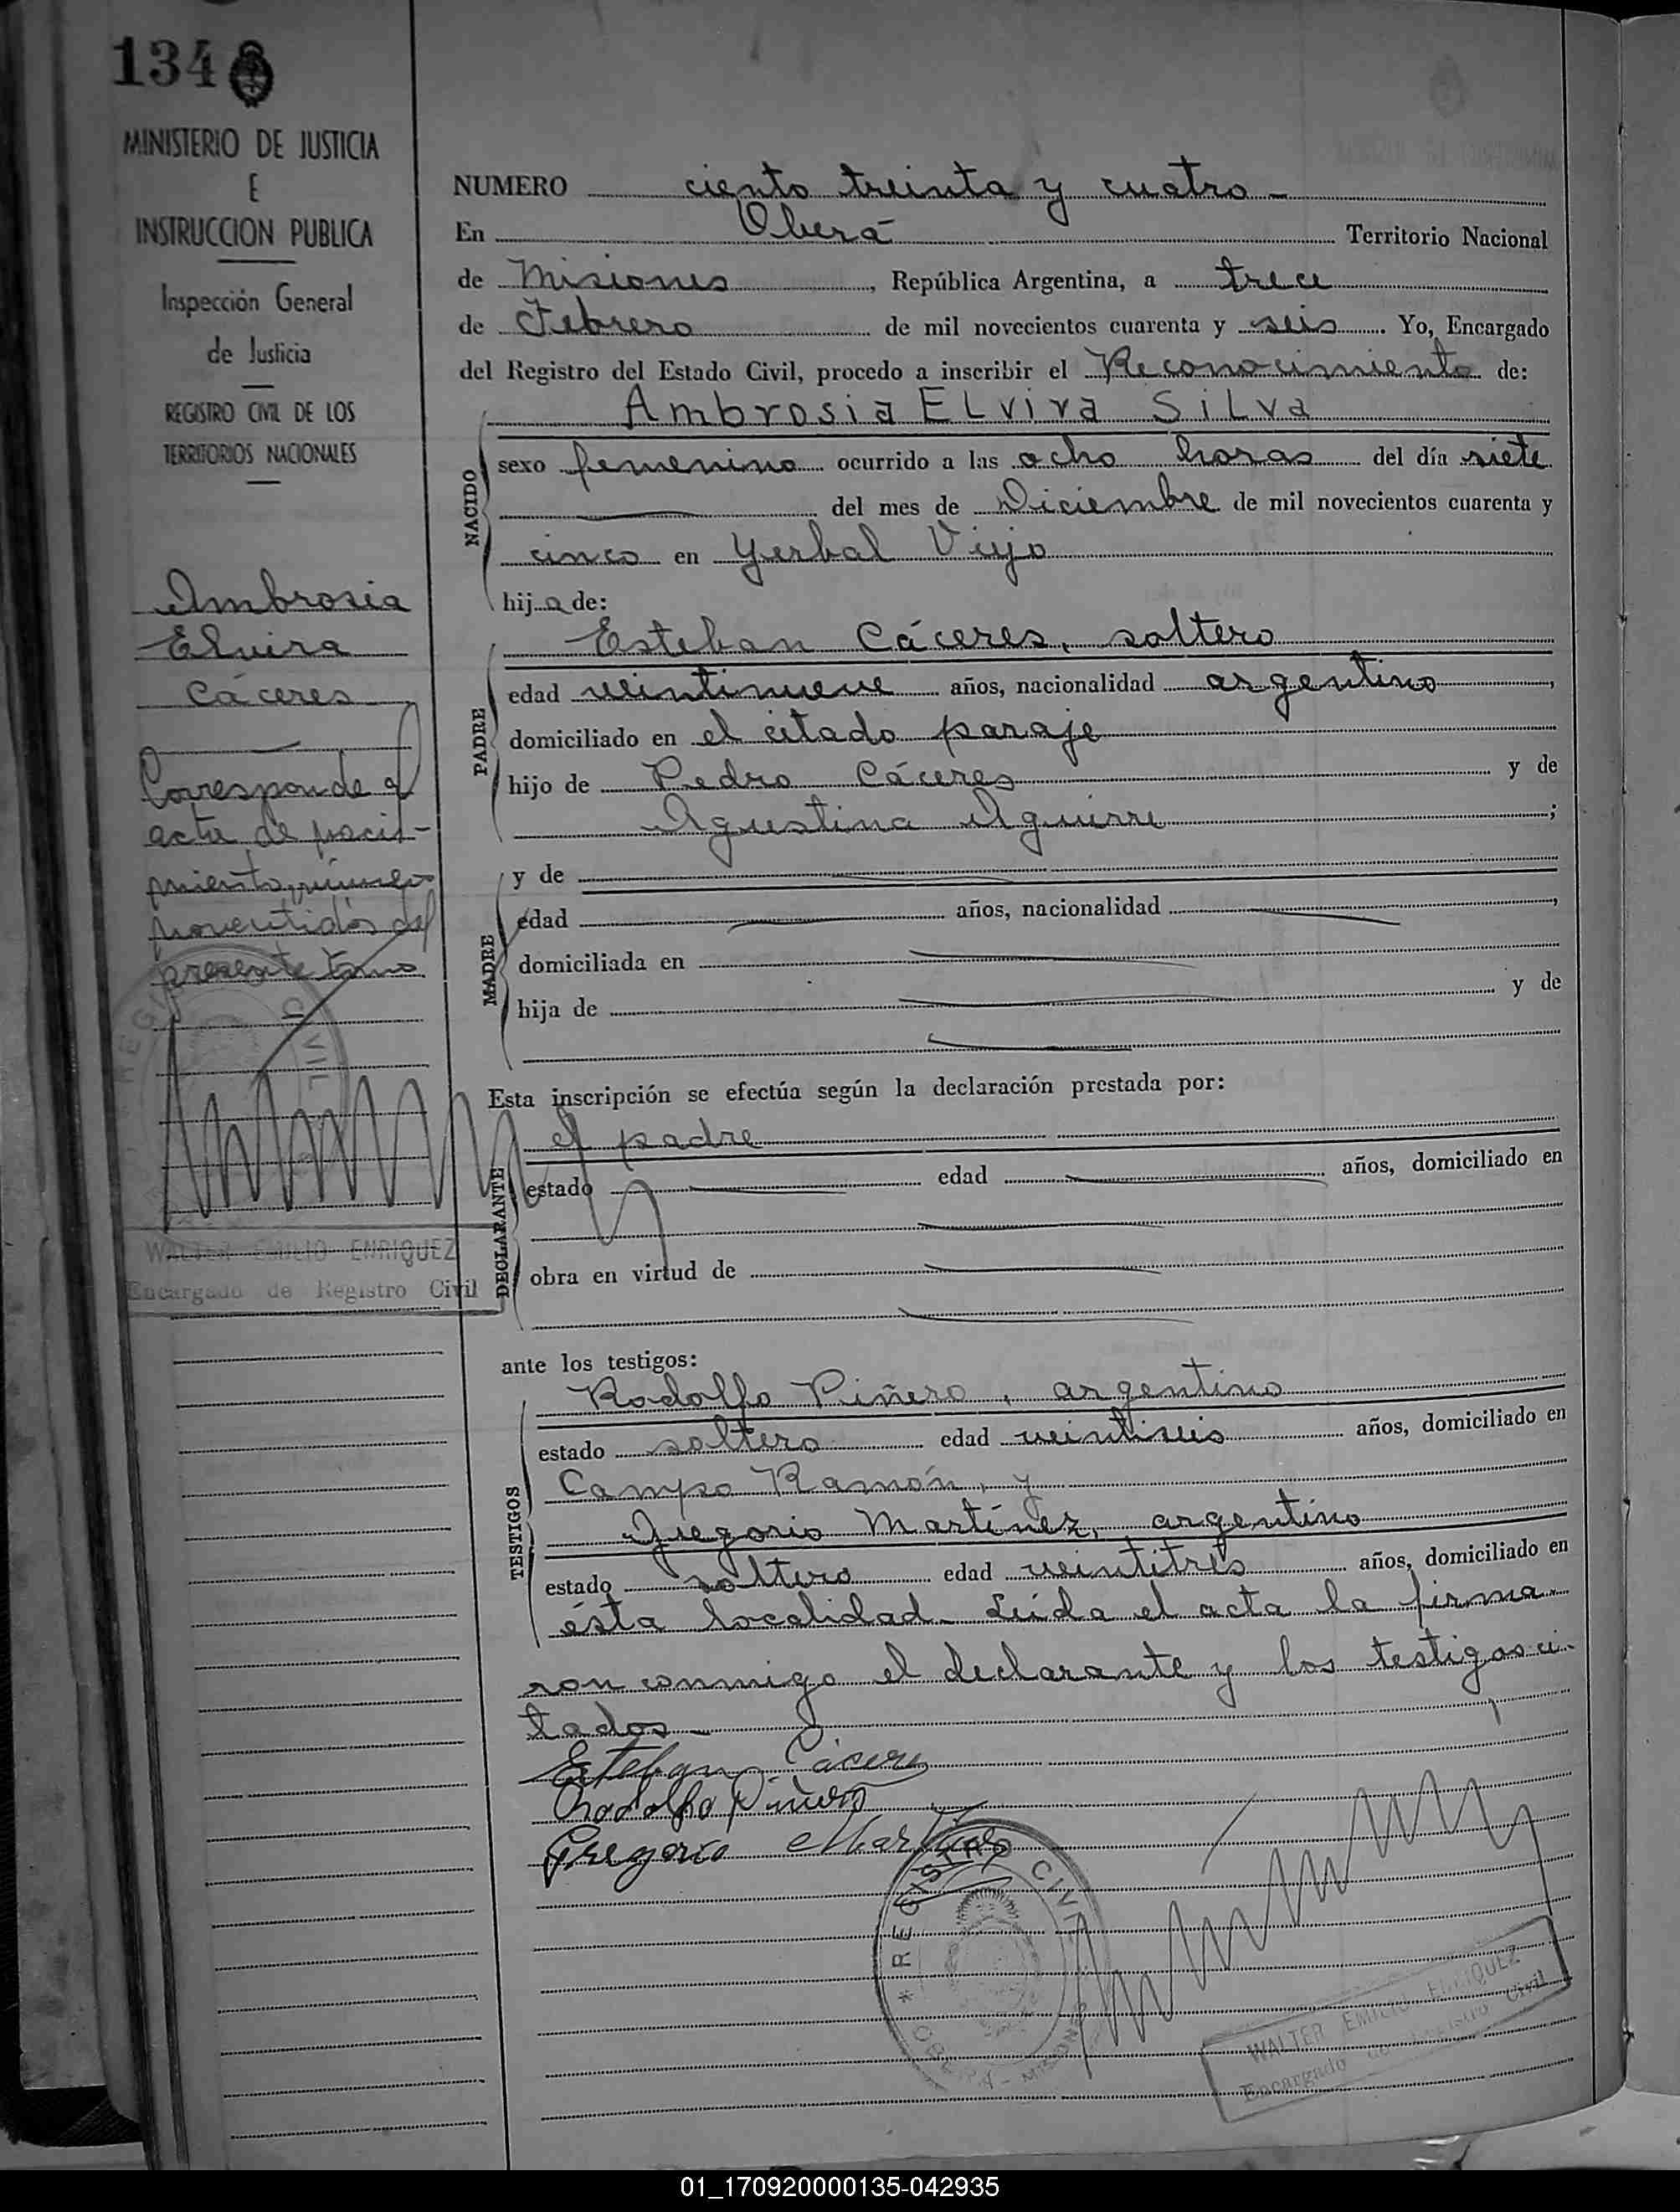 134
MINISTERIO DE JUSTICIA
E
INSTRUCCION PUBLICA
Inspección General
de Justicia
REGISTRO CIVIL DE LOS
TERRITORIOS NACIONALES
Ambrosia
Elvira
Cáceres
Corresponde al
acta de naci-
miento número
noventidós del
presente tomo
REGISTRO CIVIL
WALTER EMILIO ENRIQUEZ
Encargado de Registro Civil
NUMERO ciento treinta y cuatro -
En Oberá Territorio Nacional
de Misiones, República Argentina, a trece
de Febrero de mil novecientos cuarenta y seis. Yo, Encargado
del Registro del Estado Civil, procedo a inscribir el Reconocimiento de:
Ambrosia ELvira SiLva
NACIDO
sexo femenino ocurrido a las ocho horas del día siete
del mes de Diciembre de mil novecientos cuarenta y
cinco en Yerbal Viejo
hija de:
Esteban Cáceres, soltero
PADRE
edad veintinueve años, nacionalidad argentino,
domiciliado en el citado paraje
hijo de Pedro Cáceres y de
Agustina Aguirre;
y de
MADRE
edad años, nacionalidad,
domiciliada en
hija de y de
Esta inscripción se efectúa según la declaración prestada por:
el padre
DECLARANTE
estado edad años, domiciliado en
obra en virtud de
ante los testigos:
Rodolfo Piñero, argentino
TESTIGOS
estado soltero edad veintiseis años, domiciliado en
Campo Ramón, y
Gregorio Martínez, argentino
estado soltero edad veintitrés años, domiciliado en
ésta localidad - Leída el acta la firma-
ron conmigo el declarante y los testigos ci-
tados -
Esteban Cáceres
Rodolfo Piñero
Gregorio Martinez
* REGISTRO CIVIL
OBERÁ - MISIONES
WALTER EMILIO ENRIQUEZ
Encargado de Registro Civil
01_170920000135-042935